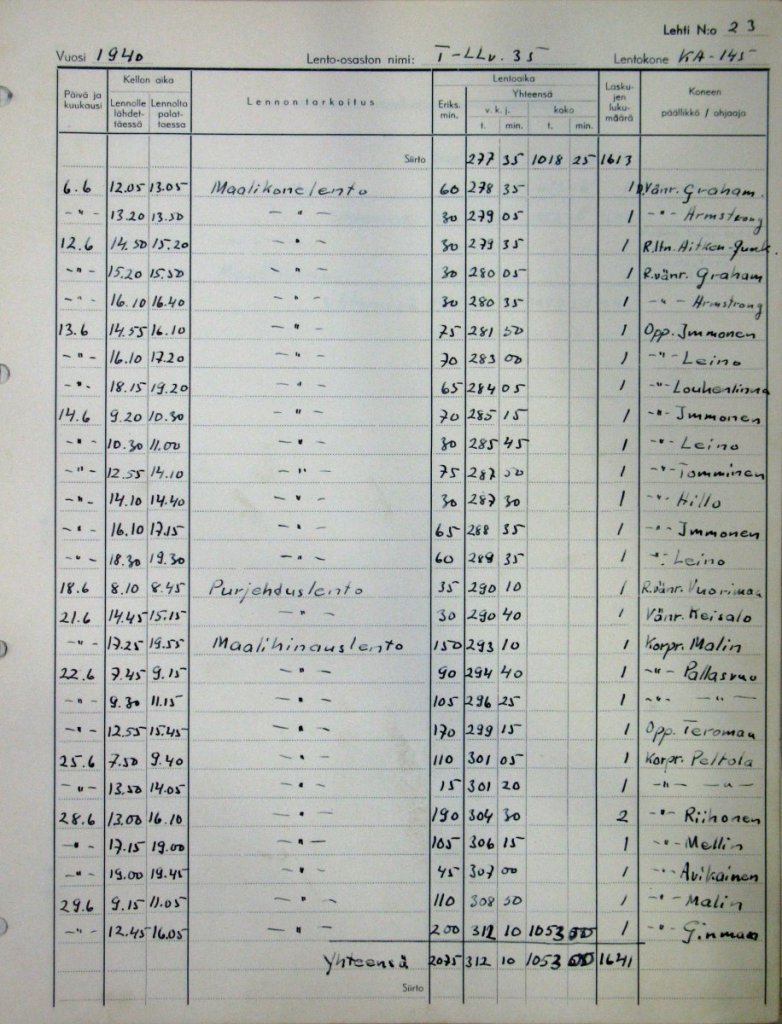 Lehti N:o 23
Vuosi 1940 Lento-osaston nimi: T-LLv. 35 Lentokone KA-145
Päivä ja kuukausi Kellon aika Lennolle lähdettäessä Lennolta palattaessa Lennon tarkoitus Lentoaika Eriks. min. Yhteensä v. k. j. t. min. koko t. min. Laskujen lukumäärä Koneen päällikkö / ohjaaja
Siirto 277 35 1018 25 1613
6.6 12.05 13.05 Maalikonelento 60 278 35 1 R.Vänr. Graham.
-"- 13.20 13.50 -"- 30 279 05 1 -"- Armstrong
12.6 14.50 15.20 -"- 30 279 35 1 R.ltn. Aitken-Quack.
-"- 15.20 15.50 -"- 30 280 05 1 R.vänr. Graham
-"- 16.10 16.40 -"- 30 280 35 1 -"- Armstrong
13.6 14.55 16.10 -"- 75 281 50 1 Opp. Immonen
-"- 16.10 17.20 -"- 70 283 00 1 -"- Leino
-"- 18.15 19.20 -"- 65 284 05 1 -"- Louhenlinna
14.6 9.20 10.30 -"- 70 285 15 1 -"- Immonen
-"- 10.30 11.00 -"- 30 285 45 1 -"- Leino
-"- 12.55 14.10 -"- 75 287 00 1 -"- Tomminen
-"- 14.10 14.40 -"- 30 287 30 1 -"- Hillo
-"- 16.10 17.15 -"- 65 288 35 1 -"- Immonen
-"- 18.30 19.30 -"- 60 289 35 1 -"- Leino
18.6 8.10 8.45 Purjehduslento 35 290 10 1 R.vänr. Vuorimaa
21.6 14.45 15.15 -"- 30 290 40 1 Vänr. Keisalo
-"- 17.25 19.55 Maalihinauslento 150 293 10 1 Korpr. Malin
22.6 7.45 9.15 -"- 90 294 40 1 -"- Pallasvuo
-"- 9.30 11.15 -"- 105 296 25 1 -"- -"-
-"- 12.55 15.45 -"- 170 299 15 1 Opp. Teromaa
25.6 7.50 9.40 -"- 110 301 05 1 Korpr. Peltola
-"- 13.50 14.05 -"- 15 301 20 1 -"- -"-
28.6 13.00 16.10 -"- 190 304 30 2 -"- Riihonen
-"- 17.15 19.00 -"- 105 306 15 1 -"- Mellin
-"- 19.00 19.45 -"- 45 307 00 1 -"- Avikainen
29.6 9.15 11.05 -"- 110 308 50 1 -"- Malin
-"- 12.45 16.05 -"- 200 312 10 1053 00 1 -"- Ginman
Yhteensä 2075 312 10 1053 00 1641
Siirto